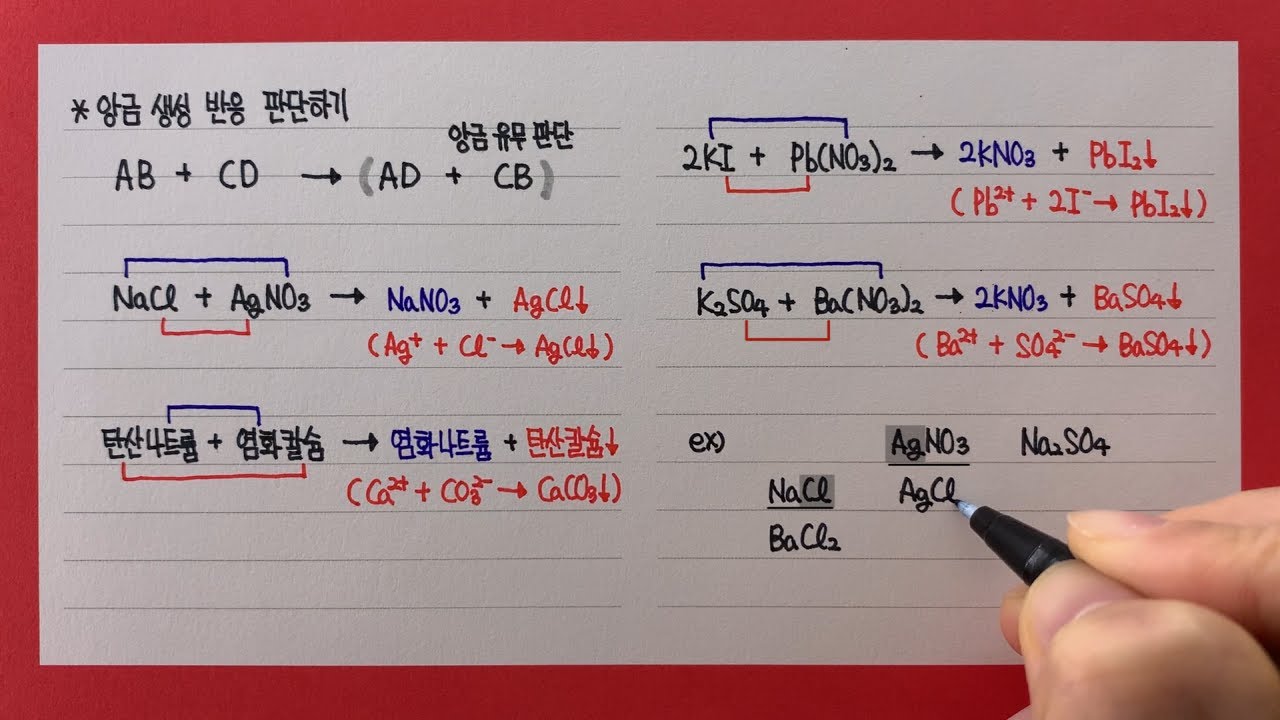 * 앙금 생성 반응 판단하기
앙금 유무 판단
AB + CD → (AD + CB)
NaCl + AgNO₃ → NaNO₃ + AgCl↓
(Ag⁺ + Cl⁻ → AgCl↓)
탄산나트륨 + 염화칼슘 → 염화나트륨 + 탄산칼슘↓
(Ca²⁺ + CO₃²⁻ → CaCO₃↓)
2KI + Pb(NO₃)₂ → 2KNO₃ + PbI₂↓
(Pb²⁺ + 2I⁻ → PbI₂↓)
K₂SO₄ + Ba(NO₃)₂ → 2KNO₃ + BaSO₄↓
(Ba²⁺ + SO₄²⁻ → BaSO₄↓)
ex) AgNO₃ Na₂SO₄
NaCl AgCl
BaCl₂